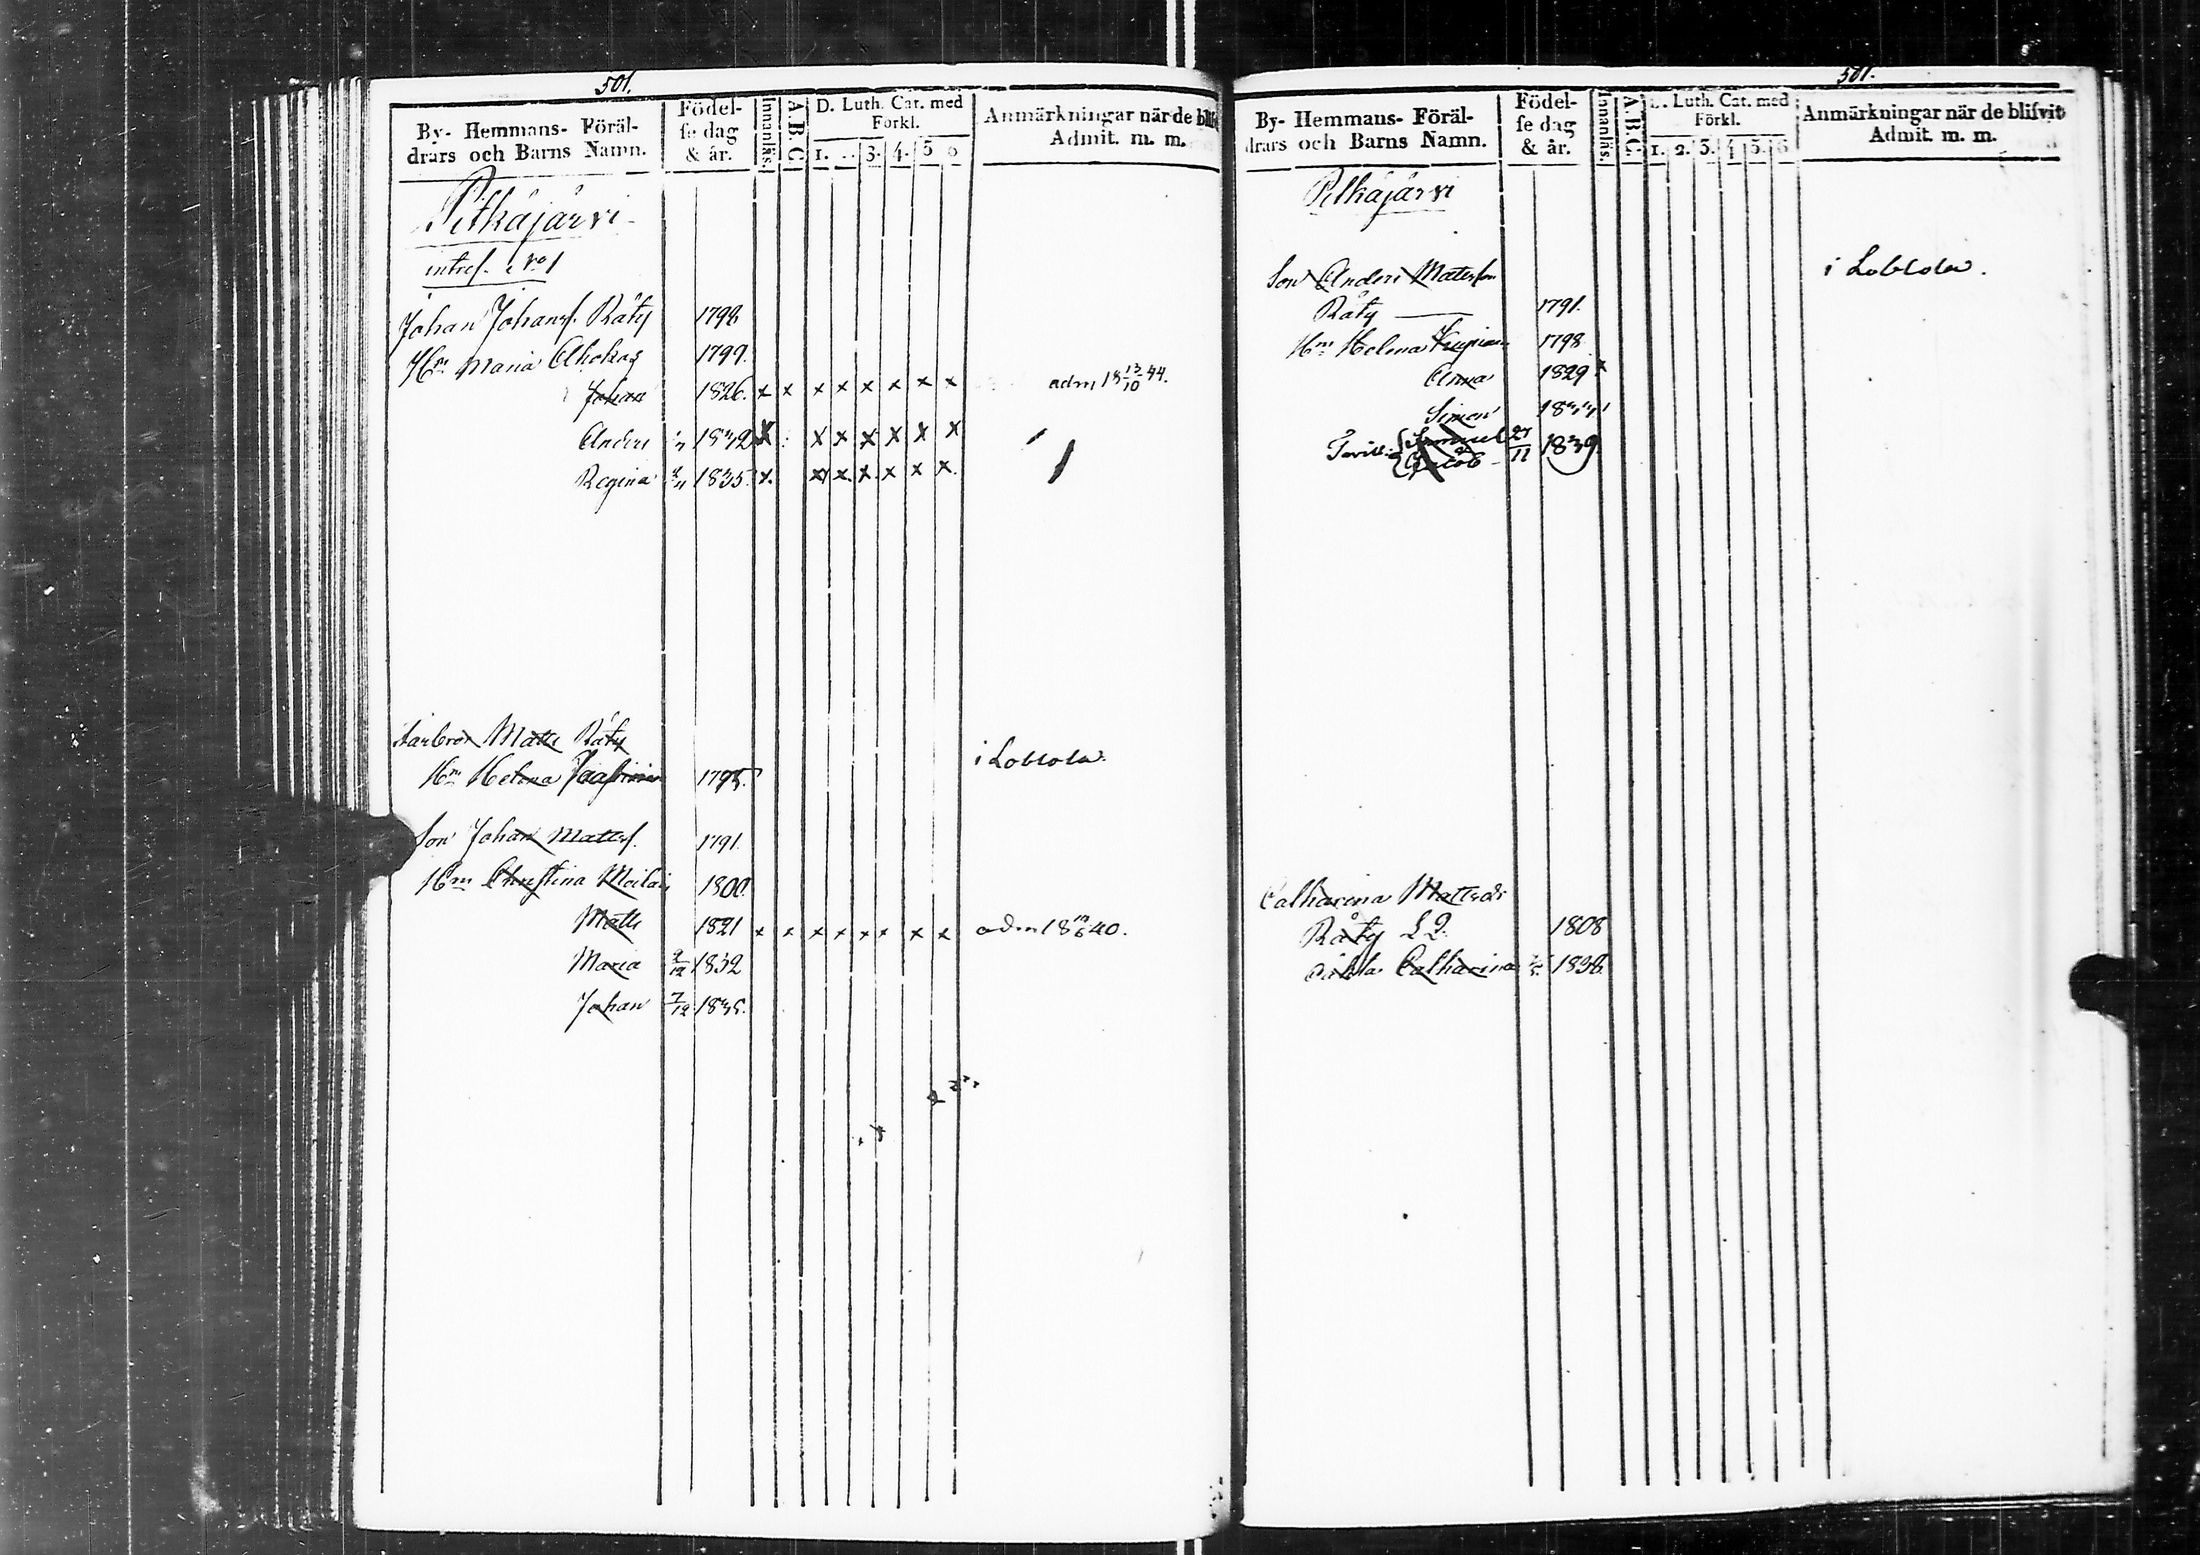 501.
By- Hemmans- Föräl-
drars och Barns Namn.
Födel-
se dag
& år.
Innanläs.
A.B.C
D. Luth. Cat. med
Förkl.
1. 3. 4. 5 6
Anmärkningar när de blifv
Admit. m. m.
Pitkäjärvi
Johan Johansf. Räty 1798
Hn Maria Ahokas 1799.
Johan 1826. x x x x x x x x adm 18 13/10 44.
Anders 1832 x x x x x x x
Regina 1835. x. x x. x. x x x.
Matts Räty
Hn Helena 1795. i Lobtola.
Son Johan Mattsf. 1791.
Hn Christina Moilai 1800.
Matts 1821 x x x x x x x x adm 18 40.
Maria 2/12 1832
Johan 7/12 1835.
501.
By- Hemmans- Föräl-
drars och Barns Namn.
Födel-
se dag
& år.
Innanläs.
A.B.C.
D. Luth. Cat. med
Förkl.
1. 2. 3. 4 5. 6
Anmärkningar när de blifvit
Admit. m. m.
Pitkäjärvi
Son Anders Matsson i Lobtola.
Räty 1791.
Hn Helena 1798
Anna 1829 x
Simon
Samuel
Jacob 27/11 1839.
Catharina Mattsdr
Räty L Q. 1808
Catharina 1838.